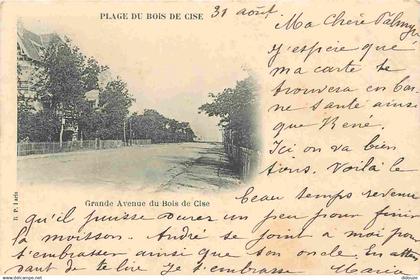 PLAGE DU BOIS DE CISE
31 août
Ma Chère Palmyre
J'espère que
ma carte te
trouvera en bon-
ne santé ainsi
que René.
Ici on va bien
tous. Voilà le
beau temps revenu
qu'il puisse durer un peu pour finir
la moisson. André se joint à moi pour
t'embrasser ainsi que son oncle. En atten
dant de te lire je t'embrasse
Grande Avenue du Bois de Cise
B. F. Paris